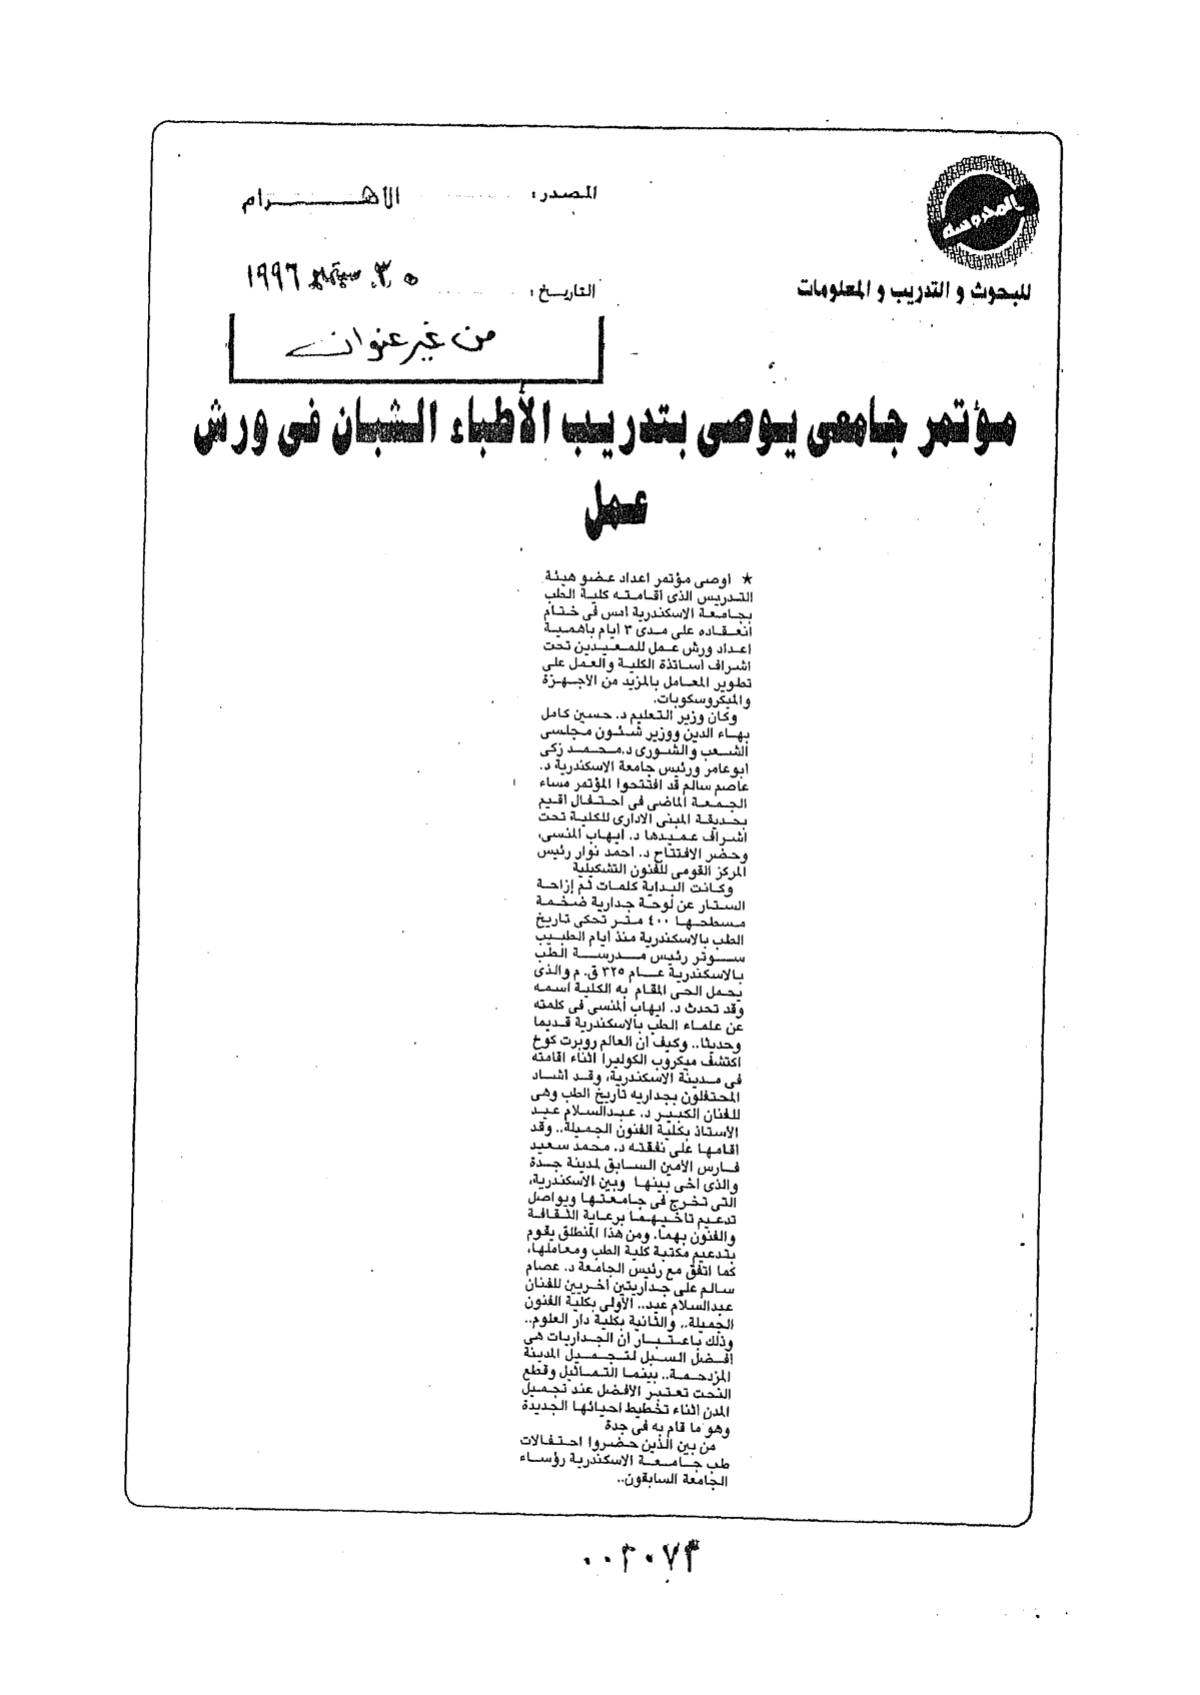 المدوسة
للبحوث و التدريب و المعلومات
المصدر: الاهـــرام
التاريخ: ٣٠ سبتمبر ١٩٩٦
من غير عنوان
مؤتمر جامعى يوصى بتدريب الأطباء الشبان فى ورش
عمل
★ اوصى مؤتمر اعداد عضو هيئة
التدريس الذى اقامته كلية الطب
بجامعة الاسكندرية امس فى ختام
انعقاده على مدى ٣ ايام باهمية
اعداد ورش عمل للمعيدين تحت
اشراف اساتذة الكلية والعمل على
تطوير المعامل بالمزيد من الاجهزة
والميكروسكوبات.
وكان وزير التعليم د. حسين كامل
بهاء الدين ووزير شئون مجلسى
الشعب والشورى د. محمد زكى
ابو عامر ورئيس جامعة الاسكندرية د.
عاصم سالم قد افتتحوا المؤتمر مساء
الجمعة الماضى فى احتفال اقيم
بحديقة المبنى الادارى للكلية تحت
اشراف عميدها د. ايهاب المنسى،
وحضر الافتتاح د. احمد نوار رئيس
المركز القومى للفنون التشكيلية
وكانت البداية كلمات ثم إزاحة
الستار عن لوحة جدارية ضخمة
مسطحها ٤٠٠ متر تحكى تاريخ
الطب بالاسكندرية منذ ايام الطبيب
سوتر رئيس مدرسة الطب
بالاسكندرية عام ٣٢٥ ق. م والذى
يحمل الحى المقام به الكلية اسمه
وقد تحدث د. ايهاب المنسى فى كلمته
عن علماء الطب بالاسكندرية قديما
وحديثا.. وكيف ان العالم روبرت كوخ
اكتشف ميكروب الكوليرا اثناء اقامته
فى مدينة الاسكندرية، وقد اشاد
المحتفلون بجداريه تاريخ الطب وهى
للفنان الكبير د. عبدالسلام عيد
الاستاذ بكلية الفنون الجميلة.. وقد
اقامها على نفقته د. محمد سعيد
فارس الأمين السابق لمدينة جدة
والذى اخى بينها وبين الاسكندرية،
التى تخرج فى جامعتها ويواصل
تدعيم تاخيهما برعاية الثقافة
والفنون بهما. ومن هذا المنطلق يقوم
بتدعيم مكتبة كلية الطب ومعاملها،
كما اتفق مع رئيس الجامعة د. عصام
سالم على جداريتين اخريين للفنان
عبدالسلام عيد.. الأولى بكلية الفنون
الجميلة.. والثانية بكلية دار العلوم..
وذلك باعتبار ان الجداريات هى
افضل السبل لتجميل المدينة
المزدحمة.. بينما التماثيل وقطع
النحت تعتبر الافضل عند تجميل
المدن اثناء تخطيط احيائها الجديدة
وهو ما قام به فى جدة
من بين الذين حضروا احتفالات
طب جامعة الاسكندرية رؤساء
الجامعة السابقون..